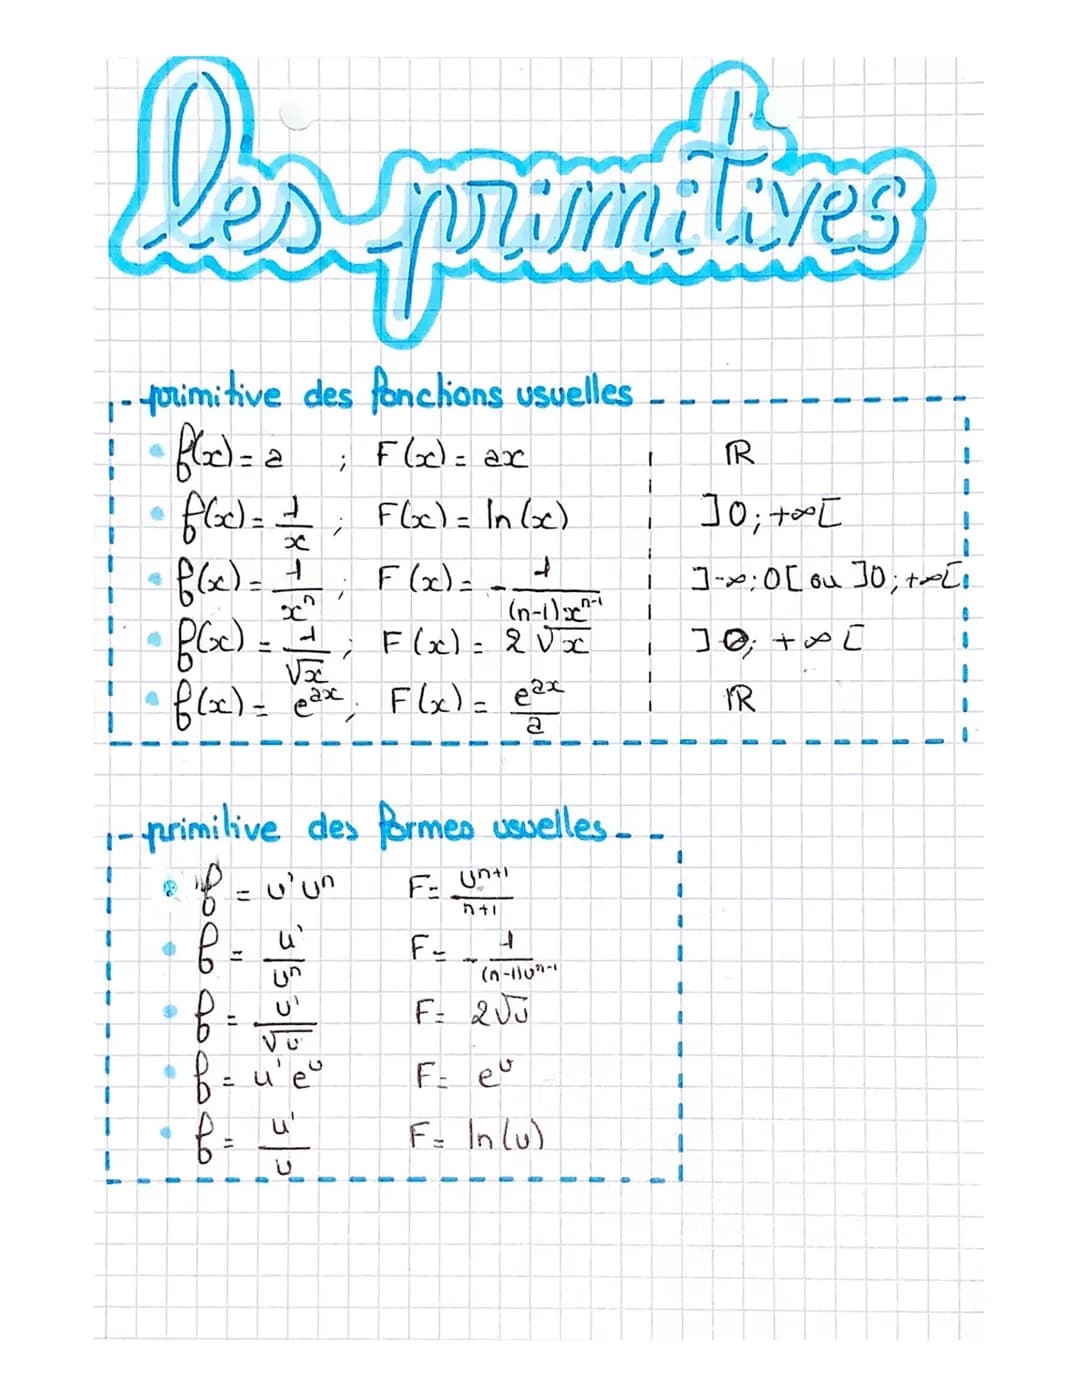 les primitives
primitive des fonctions usuelles
f(x) = a ; F(x) = ax ℝ
f(x) = 1/x ; F(x) = ln(x) ]0; +∞[
f(x) = 1/xⁿ ; F(x) = -1/((n-1)xⁿ⁻¹) ]-∞; 0[ ou ]0; +∞[
f(x) = 1/√x ; F(x) = 2√x ]0; +∞[
f(x) = eᵃˣ ; F(x) = eᵃˣ/a ℝ
primitive des formes usuelles
f = u'uⁿ F = uⁿ⁺¹/(n+1)
f = u'/uⁿ F = -1/((n-1)uⁿ⁻¹)
f = u'/√u F = 2√u
f = u'eᵘ F = eᵘ
f = u'/u F = ln(u)